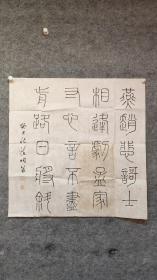 燕趙悲謌士
相逢劇孟家
寸心言不盡
前路日將斜